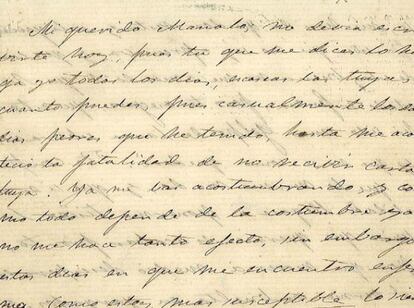 Mi querido Manolo, no devia escri
virte hoy, pues tu que me dices lo ha
ga yo todos los dias, escaseas las tuyas
cuanto puedes pues casualmente los dos
dias peores que he tenido, hasta me aco
tecio la fatalidad de no recivir carta
tuya. Ya me vas acostumbrando y co
mo todo depende de la costumbre ya
no me hace tanto efecto, sin embargo
estos dias en que me encuentro enfer
ma como estoy mas susceptible lo